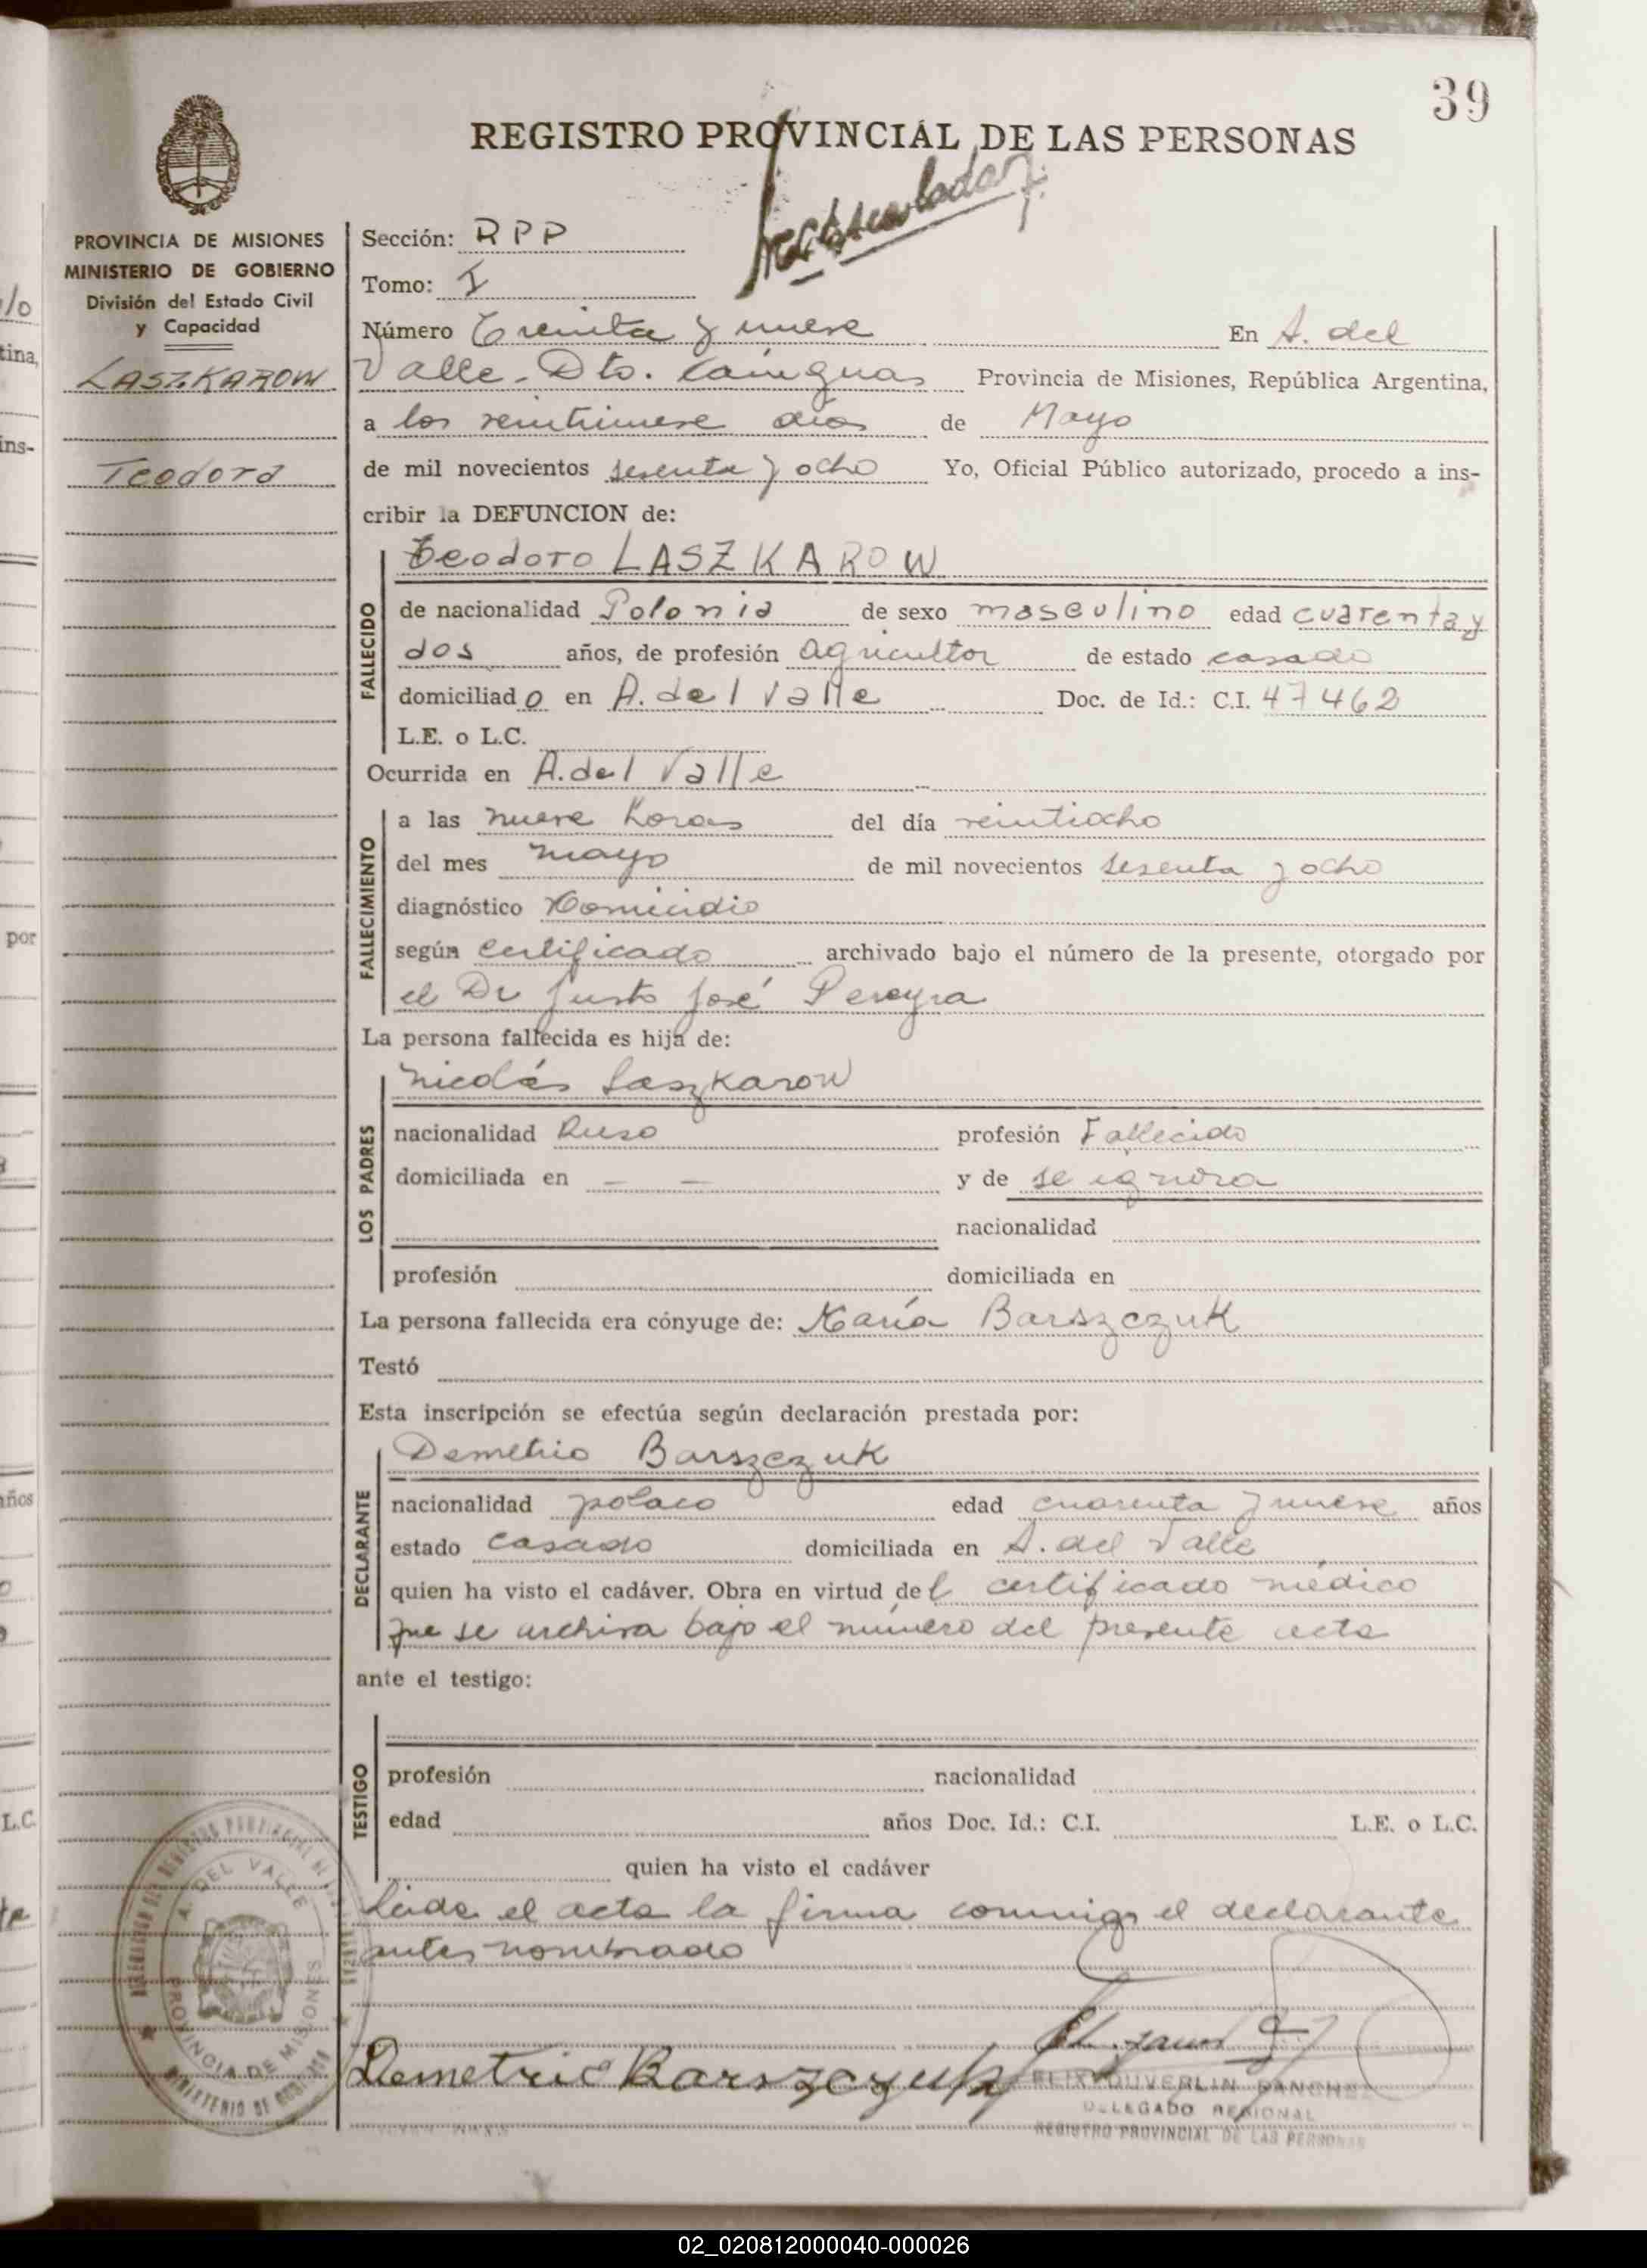 39
REGISTRO PROVINCIAL DE LAS PERSONAS
PROVINCIA DE MISIONES
MINISTERIO DE GOBIERNO
División del Estado Civil
y Capacidad
LASZKAROW
Teodoro
Sección: RPP
Tomo: I
Número Treinta y nueve En A. del
Valle - Dto. Cainguas Provincia de Misiones, República Argentina,
a los veintinueve días de Mayo
de mil novecientos sesenta y ocho Yo, Oficial Público autorizado, procedo a ins-
cribir la DEFUNCION de:
FALLECIDO
Teodoro LASZKAROW
de nacionalidad Polonia de sexo masculino edad cuarenta y
dos años, de profesión agricultor de estado casado
domiciliado en A. del Valle Doc. de Id.: C.I. 47462
L.E. o L.C.
Ocurrida en A. del Valle
FALLECIMIENTO
a las nueve horas del día veintiocho
del mes mayo de mil novecientos sesenta y ocho
diagnóstico Homicidio
según certificado archivado bajo el número de la presente, otorgado por
el Dr Justo José Pereyra
La persona fallecida es hija de:
LOS PADRES
Nicolás Laszkarow
nacionalidad Ruso profesión Fallecido
domiciliada en — — y de se ignora
nacionalidad
profesión domiciliada en
La persona fallecida era cónyuge de: María Barszczuk
Testó
Esta inscripción se efectúa según declaración prestada por:
DECLARANTE
Demetrio Barszczuk
nacionalidad polaco edad cuarenta y nueve años
estado casado domiciliada en A. del Valle
quien ha visto el cadáver. Obra en virtud del certificado médico
que se archiva bajo el número del presente acta
ante el testigo:
TESTIGO
profesión nacionalidad
edad años Doc. Id.: C.I. L.E. o L.C.
quien ha visto el cadáver
Leida el acta la firma conmigo el declarante
antes nombrado
Demetrio Barszczuk
DELEGADO REGIONAL
REGISTRO PROVINCIAL DE LAS PERSONAS
A. DEL VALLE
PROVINCIA DE MISIONES
02_020812000040-000026